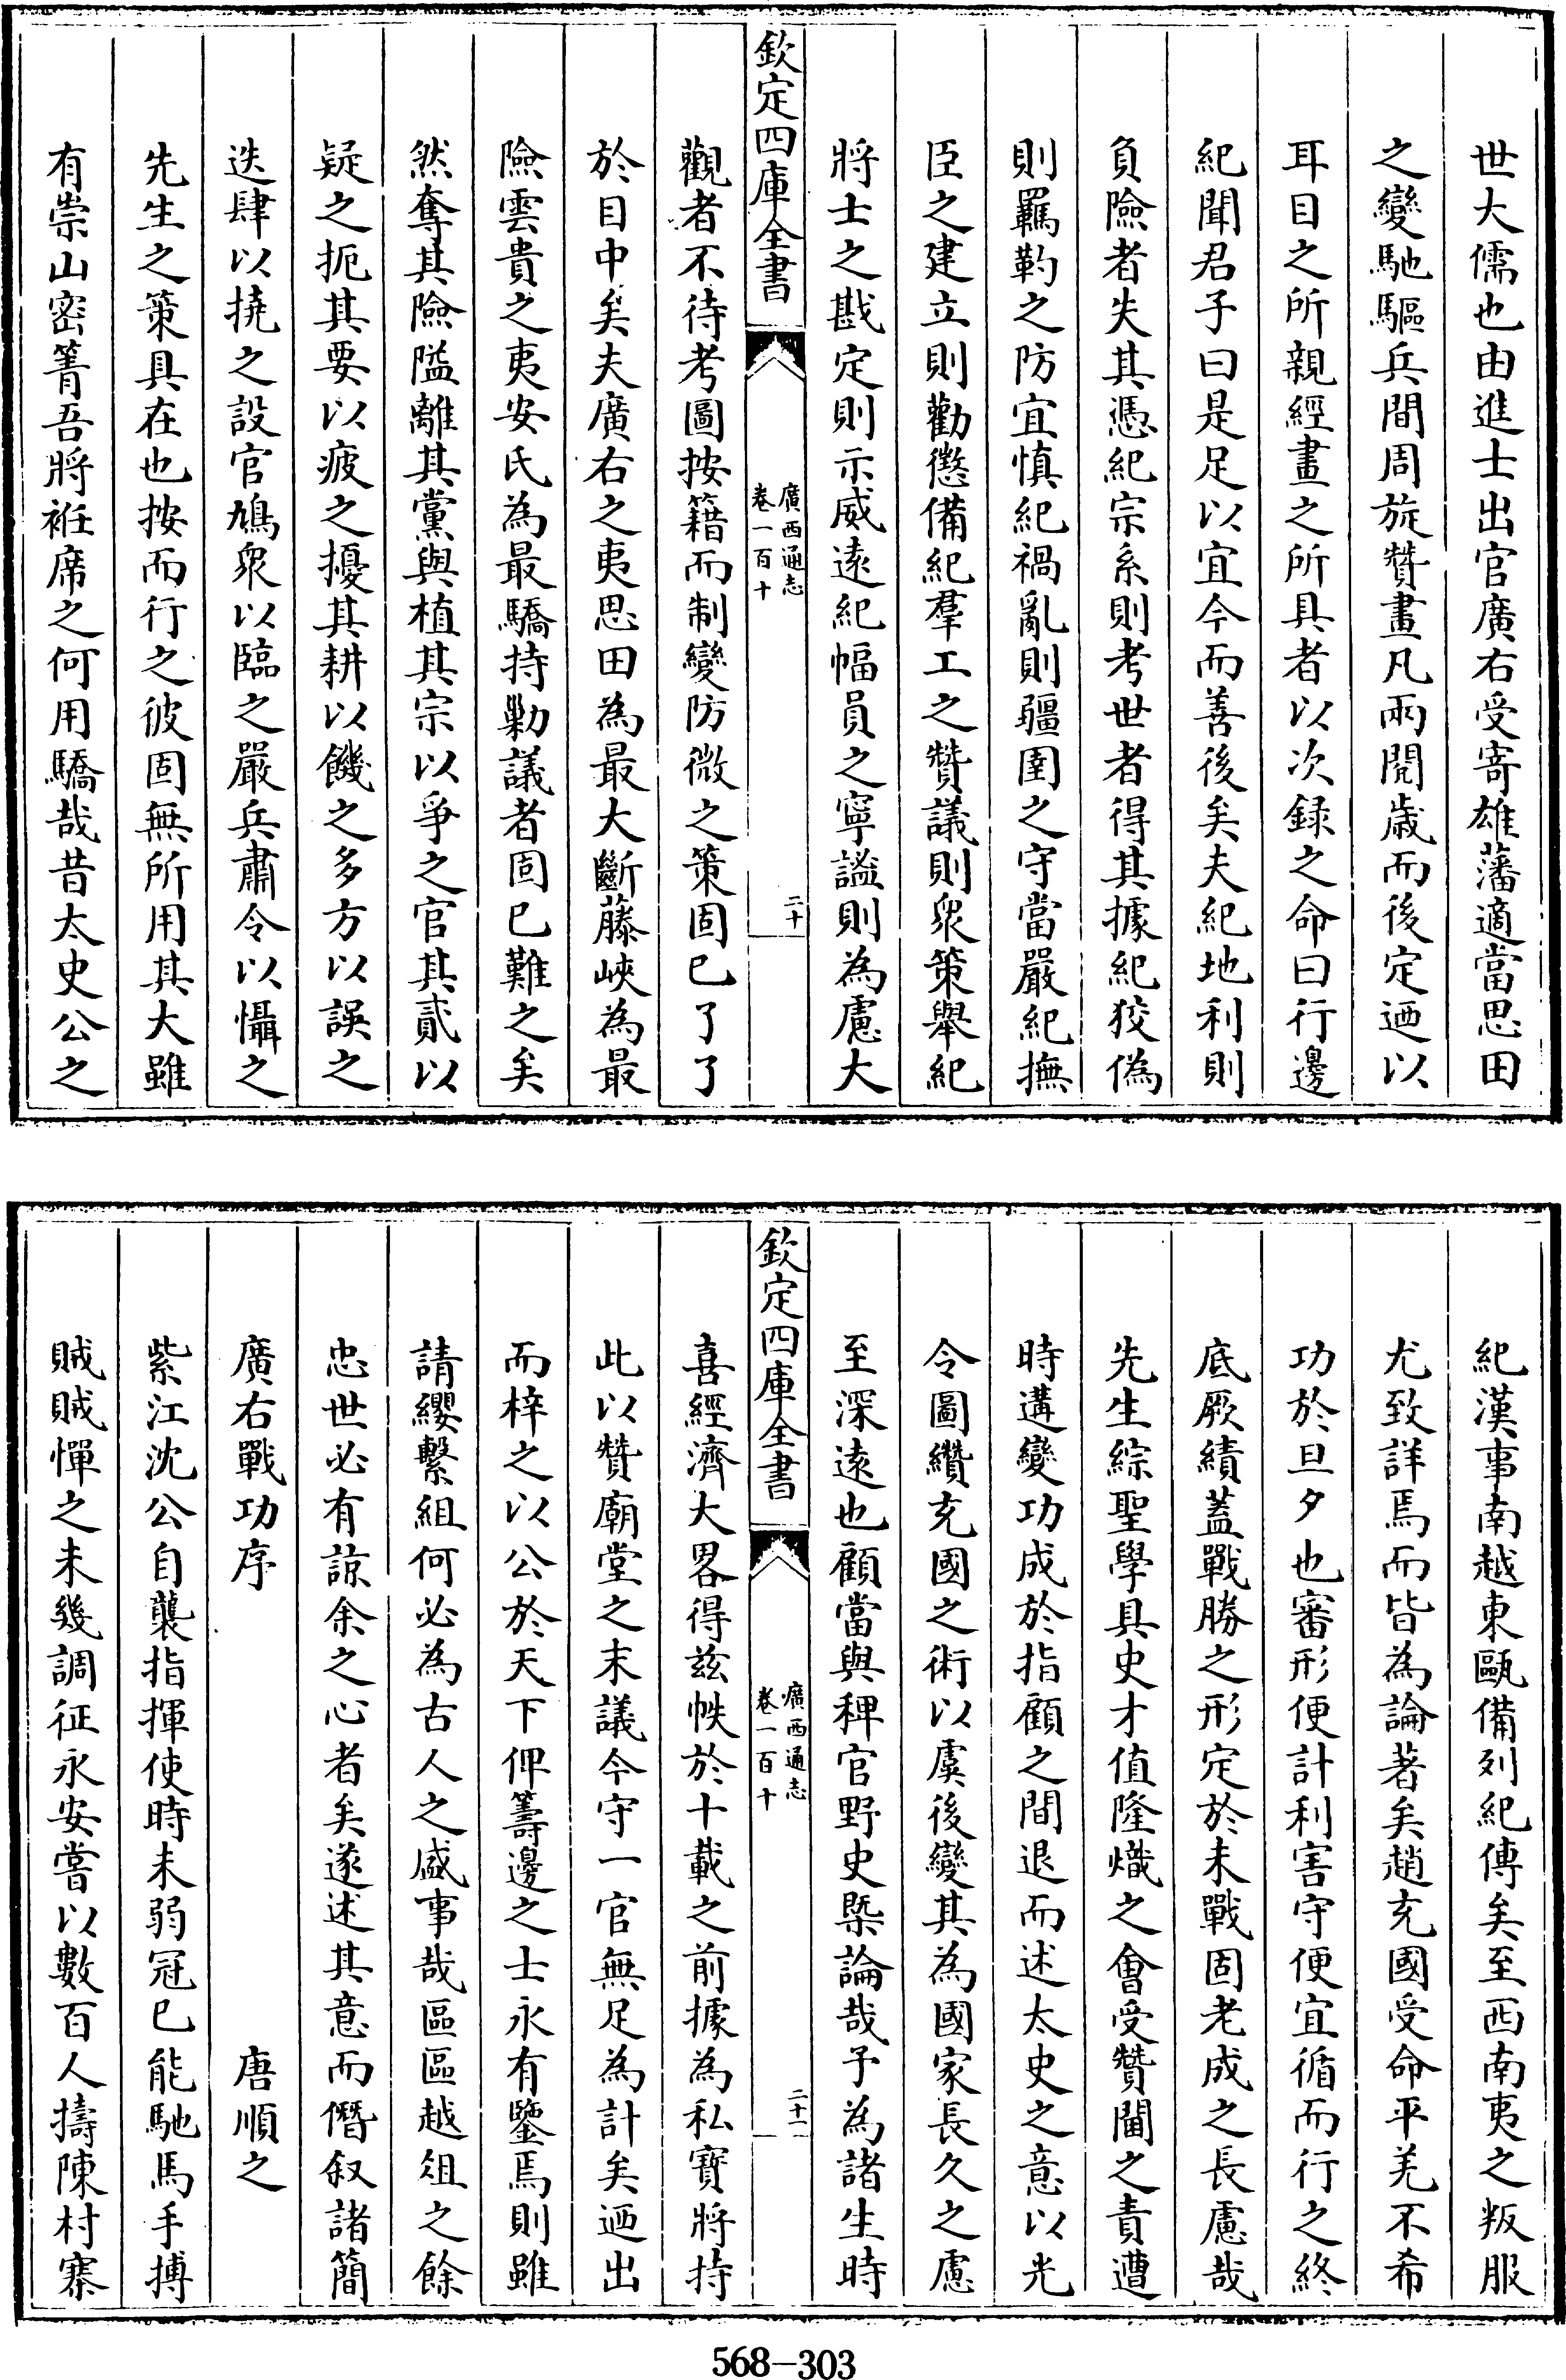 世大儒也由進士出官廣右受寄雄藩適當思田
之變馳驅兵間周旋贊畫凡兩閱歲而後定迺以
耳目之所親經畫之所具者以次録之命曰行邊
紀聞君子曰是足以宜今而善後矣夫紀地利則
負險者失其憑紀宗系則考世者得其據紀狡偽
則羈靮之防宜慎紀禍亂則疆圉之守當嚴紀撫
臣之建立則勸懲備紀羣工之贊議則衆策舉紀
將士之戡定則示威遠紀幅員之寧謐則為慮大
欽定四庫全書
廣西通志
卷一百十
二十
觀者不待考圖按籍而制變防微之策固已了了
於目中矣夫廣右之夷思田為最大斷藤峽為最
險雲貴之夷安氏為最驕持勦議者固已難之矣
然奪其險隘離其黨與植其宗以爭之官其貳以
疑之扼其要以疲之擾其耕以饑之多方以誤之
迭肆以撓之設官鳩衆以臨之嚴兵肅令以懾之
先生之策具在也按而行之彼固無所用其大雖
有崇山密箐吾將袵席之何用驕哉昔太史公之
紀漢事南越東甌備列紀傳矣至西南夷之叛服
尤致詳焉而皆為論著矣趙充國受命平羌不希
功於旦夕也審形便計利害守便宜循而行之終
底厥績蓋戰勝之形定於未戰固老成之長慮哉
先生綜聖學具史才值隆熾之會受贊閫之責遭
時遘變功成於指顧之間退而述太史之意以光
令圖纘充國之術以虞後變其為國家長久之慮
至深遠也顧當與稗官野史槩論哉予為諸生時
欽定四庫全書
廣西通志
卷一百十
二十一
喜經濟大畧得兹帙於十載之前據為私寶將持
此以贊廟堂之末議今守一官無足為計矣迺出
而梓之以公於天下俾籌邊之士永有鑒焉則雖
請纓繫組何必為古人之盛事哉區區越俎之餘
忠世必有諒余之心者矣遂述其意而僭叙諸簡
廣右戰功序 唐順之
紫江沈公自襲指揮使時未弱冠已能馳馬手搏
賊賊憚之未幾調征永安嘗以數百人擣陳村寨
568—303